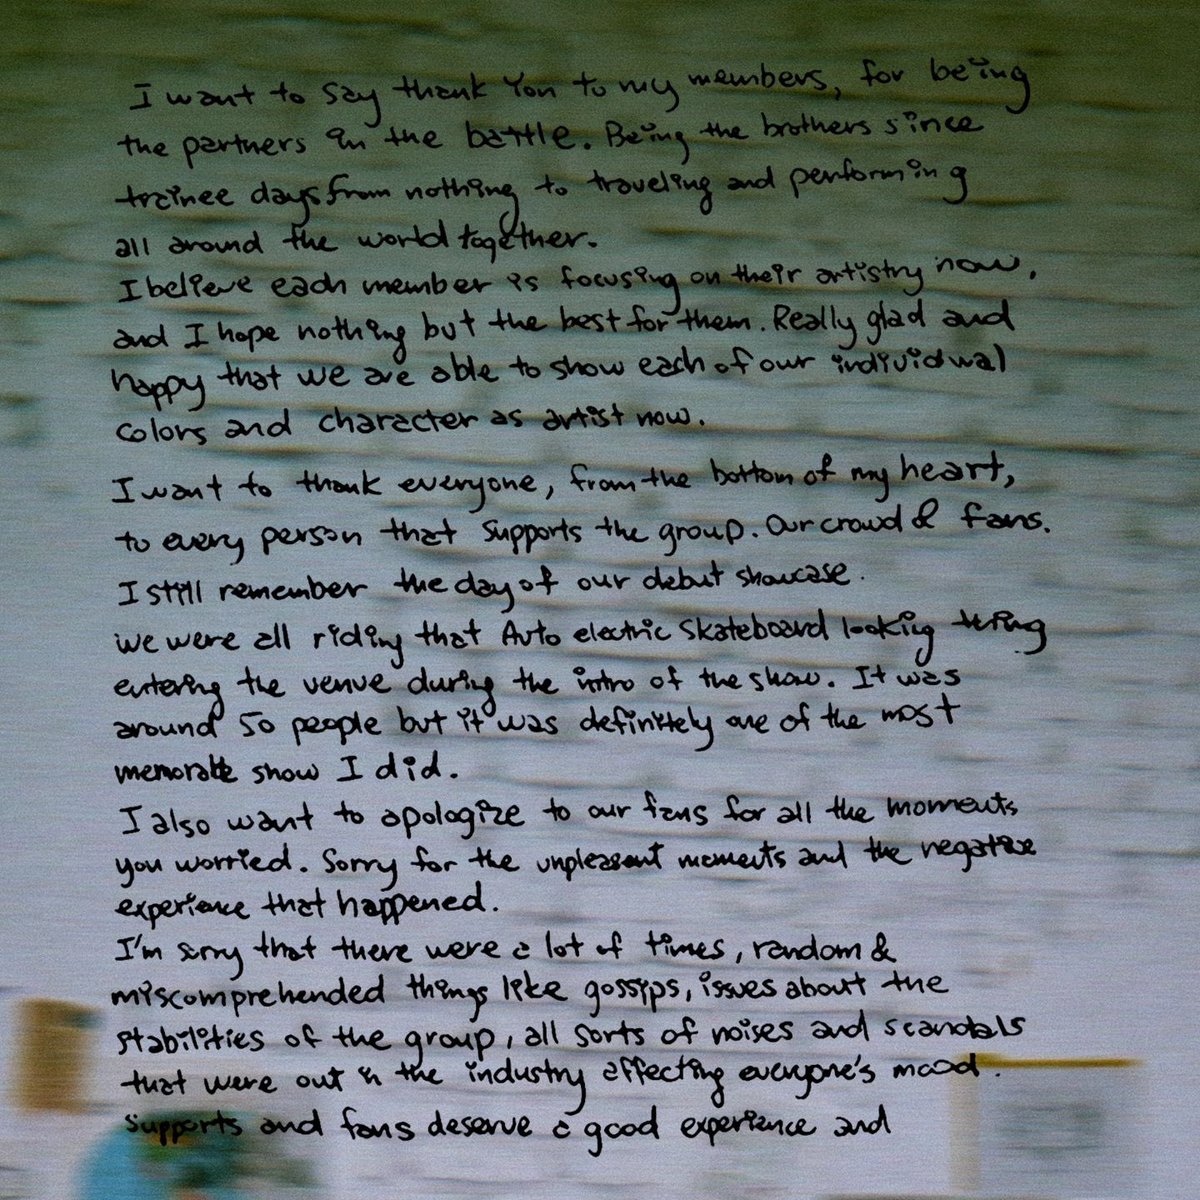 I want to say thank You to my members, for being
the partners in the battle. Being the brothers since
trainee days from nothing to traveling and performing
all around the world together.
I believe each member is focusing on their artistry now,
and I hope nothing but the best for them. Really glad and
happy that we are able to show each of our individual
colors and character as artist now.
I want to thank everyone, from the bottom of my heart,
to every person that supports the group. Our crowd & fans.
I still remember the day of our debut showcase.
we were all riding that Auto electric skateboard looking thing
entering the venue during the intro of the show. It was
around 50 people but it was definitely one of the most
memorable show I did.
I also want to apologize to our fans for all the moments
you worried. Sorry for the unpleasant moments and the negative
experience that happened.
I'm sorry that there were a lot of times, random &
miscomprehended things like gossips, issues about the
stabilities of the group, all sorts of noises and scandals
that were out in the industry affecting everyone's mood.
supports and fans deserve a good experience and